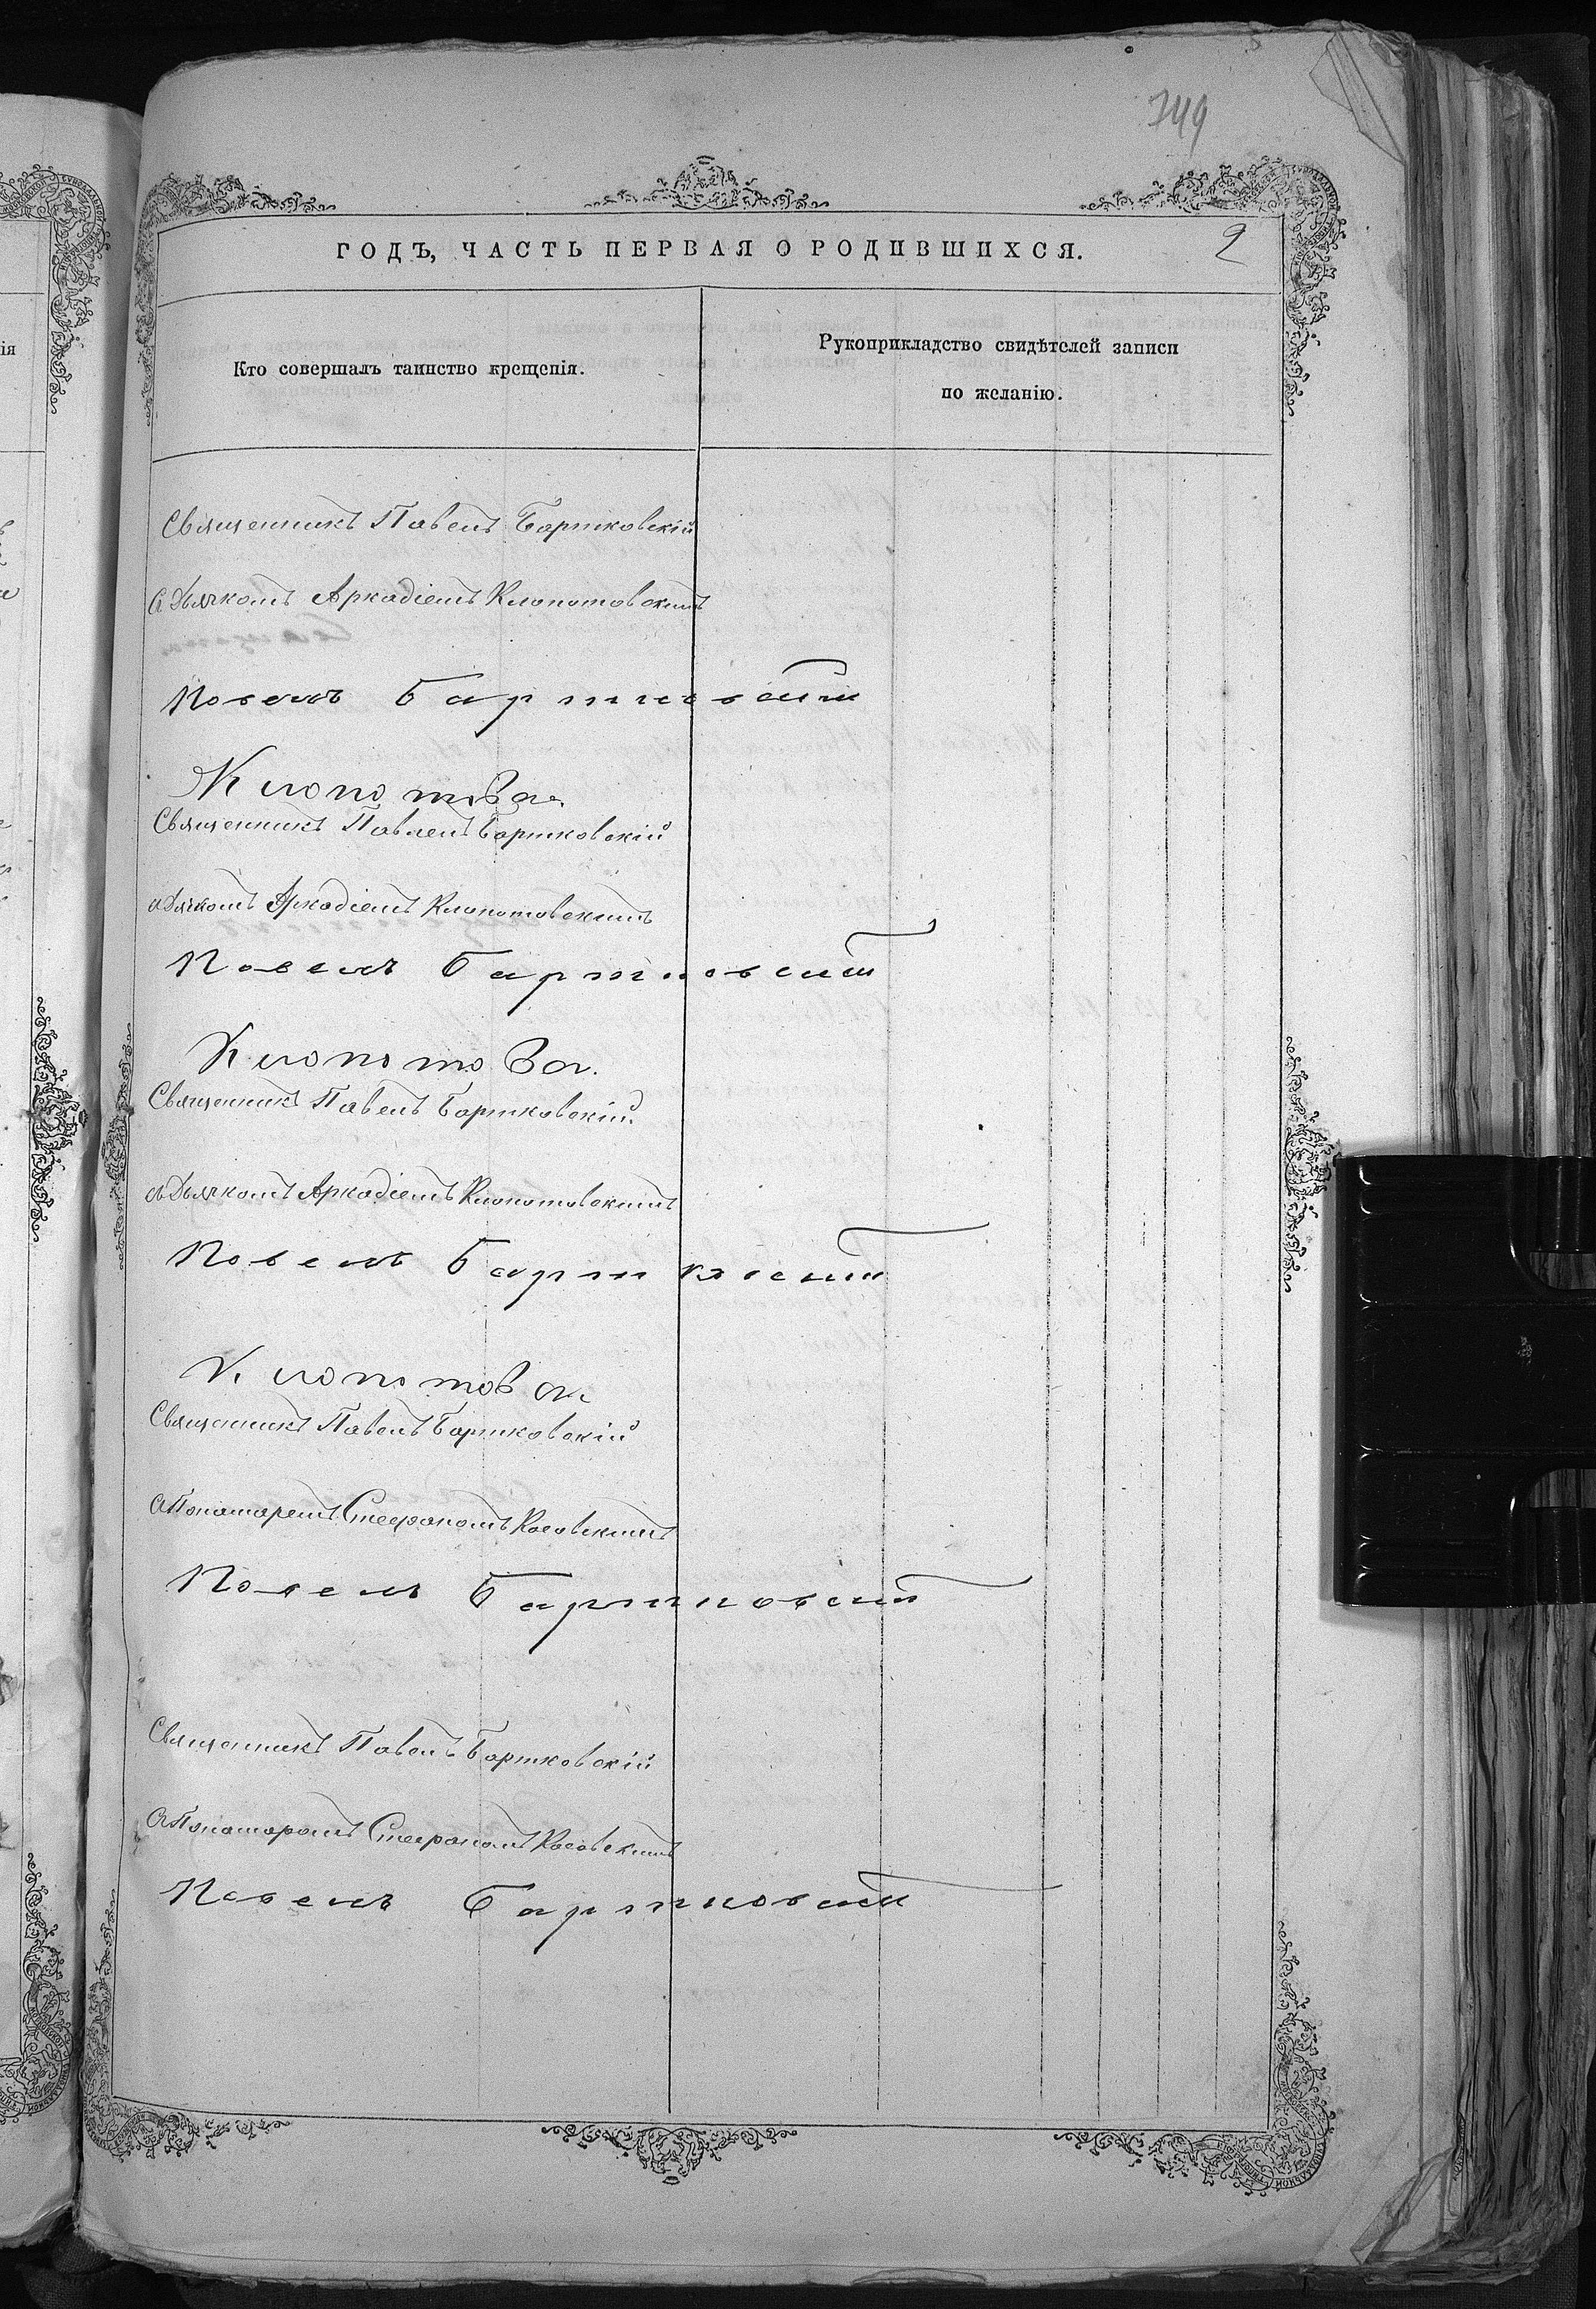 749
ГОДЪ, ЧАСТЬ ПЕРВАЯ О РОДИВШИХСЯ.
2
Кто совершалъ таинство крещенія.
Рукоприкладство свидѣтелей записи
по желанію.
Священникъ Павелъ Бартковскій
съ Дьячкомъ Аркадіемъ Клопотовскимъ
Павелъ Бартковскій
Клопотовск
Священникъ Павелъ Бартковскій
съ Дьячкомъ Аркадіемъ Клопотовскимъ
Павелъ Бартковскій
Клопотовск
Священникъ Павелъ Бартковскій
съ Дьячкомъ Аркадіемъ Клопотовскимъ
Павелъ Бартковскій
Клопотовск
Священникъ Павелъ Бартковскій
съ Понамаремъ Стефаномъ Косовскимъ
Павелъ Бартковскій
Священникъ Павелъ Бартковскій
съ Понамаромъ Стефаномъ Косовскимъ
Павелъ Бартковскій